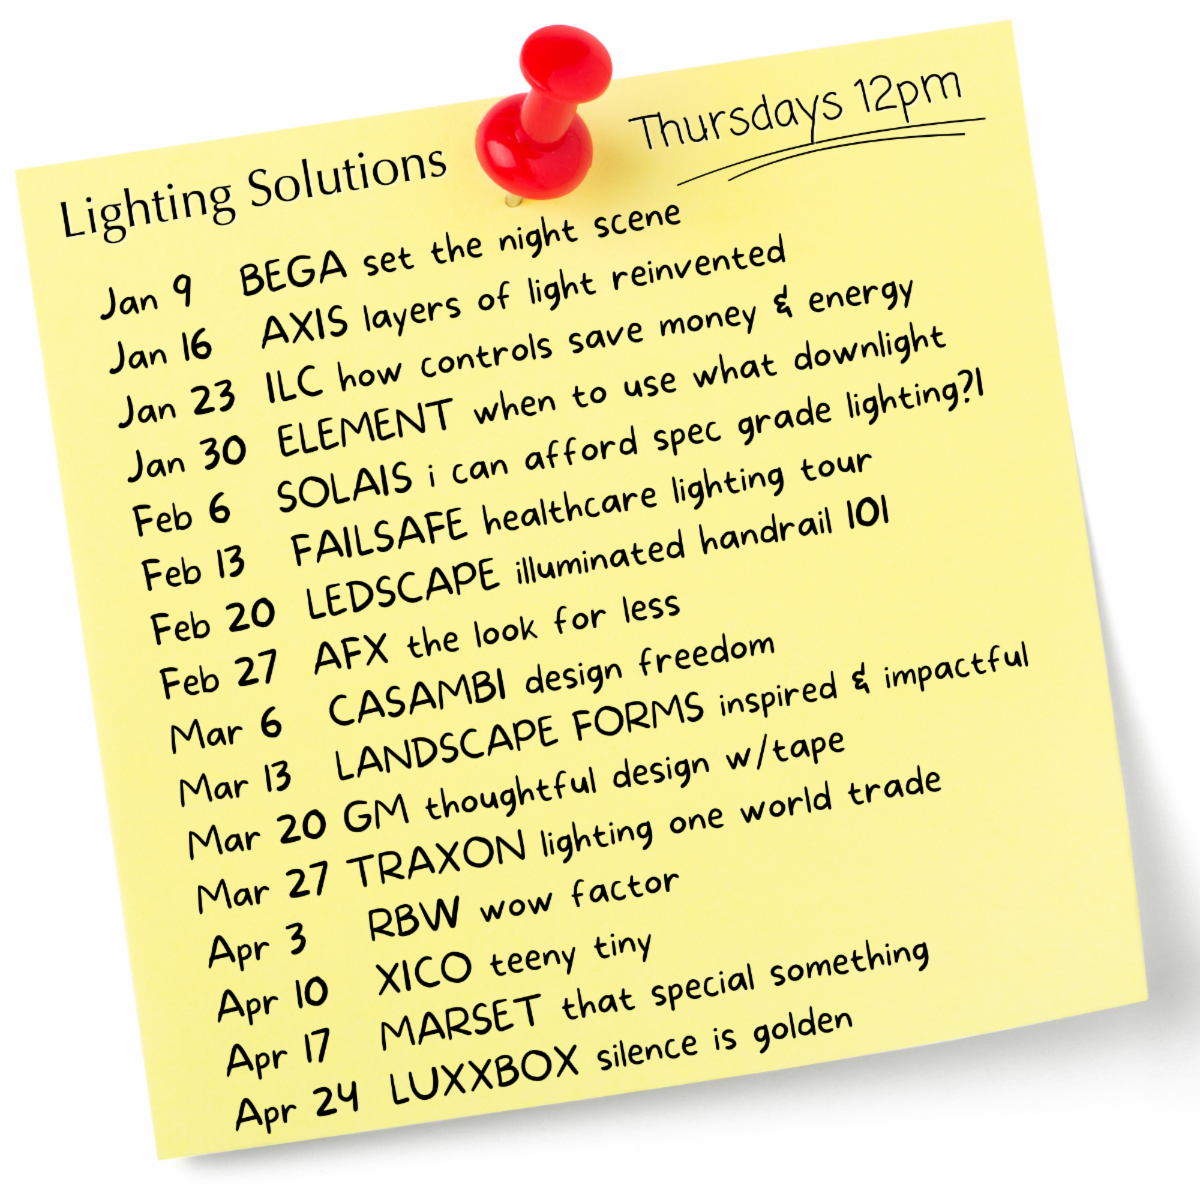 Lighting Solutions
Thursdays 12pm
Jan 9 BEGA set the night scene
Jan 16 AXIS layers of light reinvented
Jan 23 ILC how controls save money & energy
Jan 30 ELEMENT when to use what downlight
Feb 6 SOLAIS i can afford spec grade lighting?!
Feb 13 FAILSAFE healthcare lighting tour
Feb 20 LEDSCAPE illuminated handrail 101
Feb 27 AFX the look for less
Mar 6 CASAMBI design freedom
Mar 13 LANDSCAPE FORMS inspired & impactful
Mar 20 GM thoughtful design w/tape
Mar 27 TRAXON lighting one world trade
Apr 3 RBW wow factor
Apr 10 XICO teeny tiny
Apr 17 MARSET that special something
Apr 24 LUXXBOX silence is golden